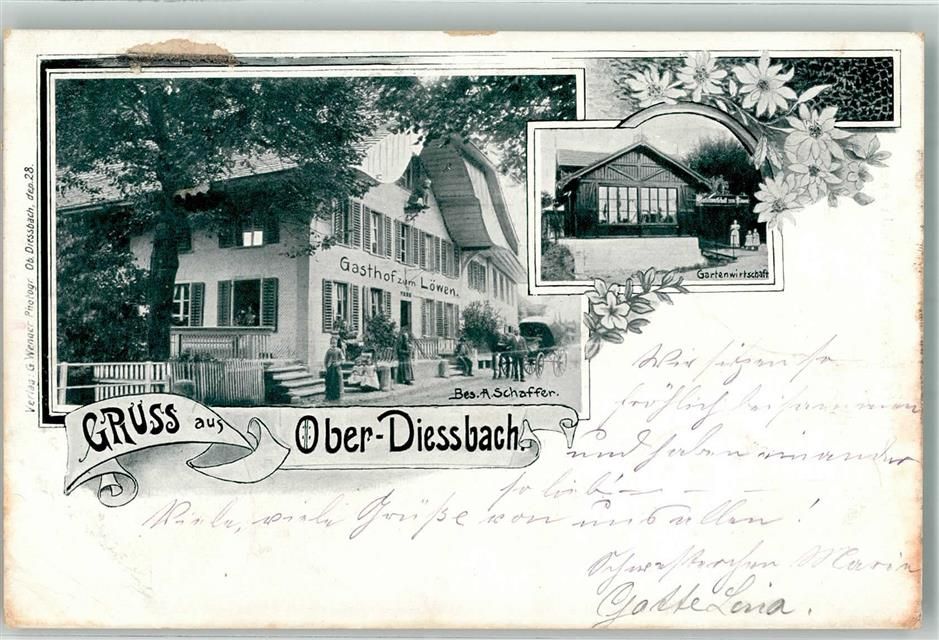 Verlag: G. Wenger Photogr. Ob. Diessbach. dep. 28.
Gasthof zum Löwen.
Bes. A. Schaffer.
Gartenwirtschaft
GRÜSS aus
Ober-Diessbach.
Wir sitzen so
fröhlich beisammen
und haben einander
so lieb! – – –
Viele, viele Grüße von uns allen!
Schwesterchen Marie
Gotte Lina.